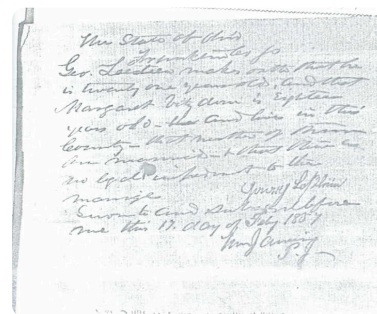 The State of Ohio
Franklin Co ss
Geo. makes oath that he
is twenty one years old, and that
Margaret is Eighteen
years old - and live in this
County - that neither of them
are married - & that there is
no legal impediment to the
marriage
Sworn to and subscribed before
me this 17 day of Feby 1857
Wm J